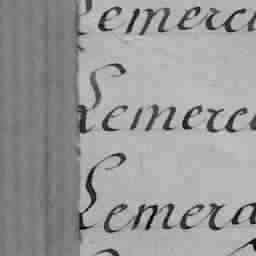 Lemerci
Lemerce
Lemera